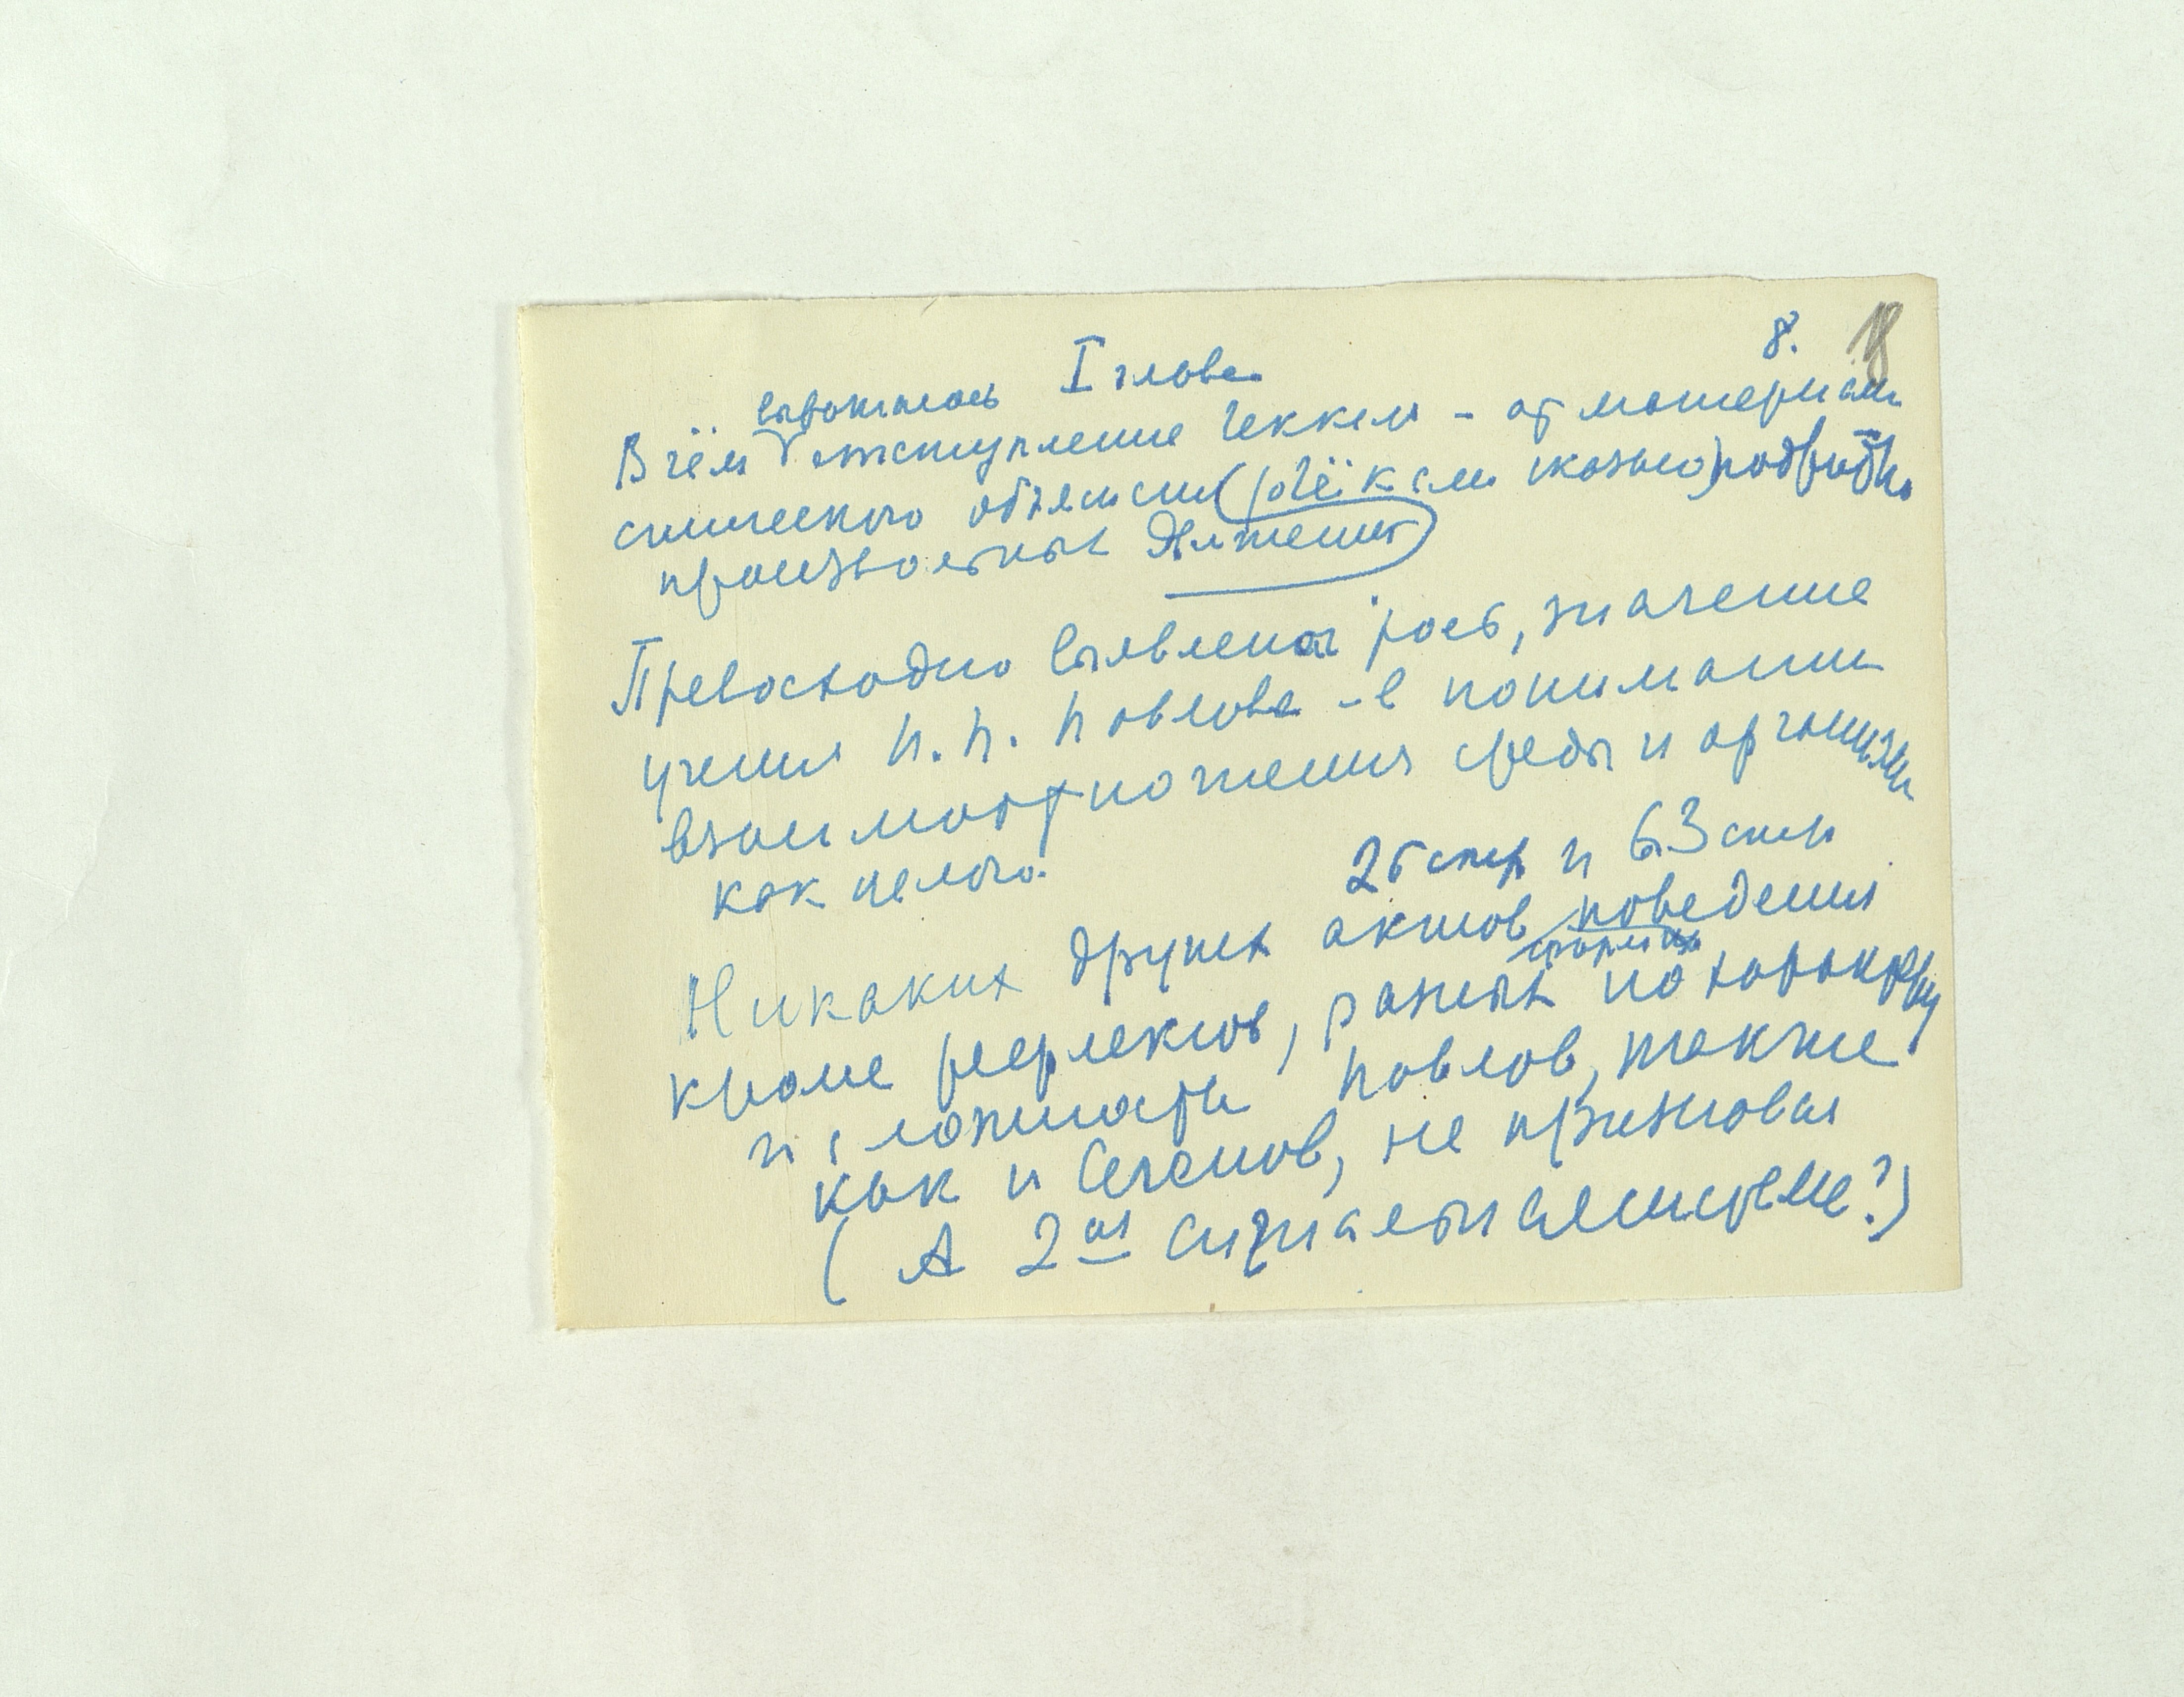 8.
I глава
выразилось
В чём отступление Геккеля – от материали
стического объяснени (о чём сказано) подробно
произвольных движений
Превосходно выявлена роль, значение
учения И. П. Павлова – в понимании
взаимоотношения среды и организма
как целого.
25 стр и 63 стр
Никаких других актов поведения
кроме рефлексов, разных по характеру
и сложности Павлов, также
как и Сеченов, не признавал
(А 2ая сигнальная система?)